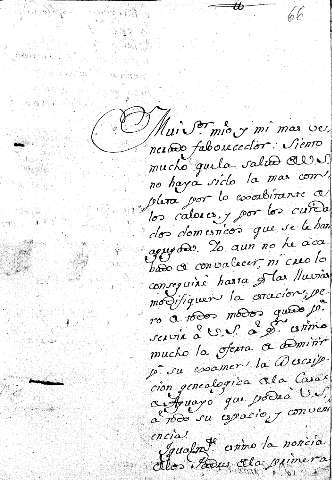 66
Mui Sor mio y mi mas ve-
nerado faborecedor: Siento
mucho que la salud de V.S.
no haya sido la mas com-
pleta por lo exorbitante de
los calores, y por los cuida-
dos domesticos que se le han
agregado. Yo aun no he aca-
bado de convalecer, ni creo lo
conseguiré hasta que las lluvias
modifiquen la estacion, pe-
ro de todos modos quedo pa
servir à V.S. à qn estimo
mucho la oferta de admitir
pa su examen la Descrip-
cion genealogica de la Casa
de Aguayo que podrà V.S.
à todo su espacio, y conveni-
encia.
Igualmte estimo la noticia
de los Padres de la primera